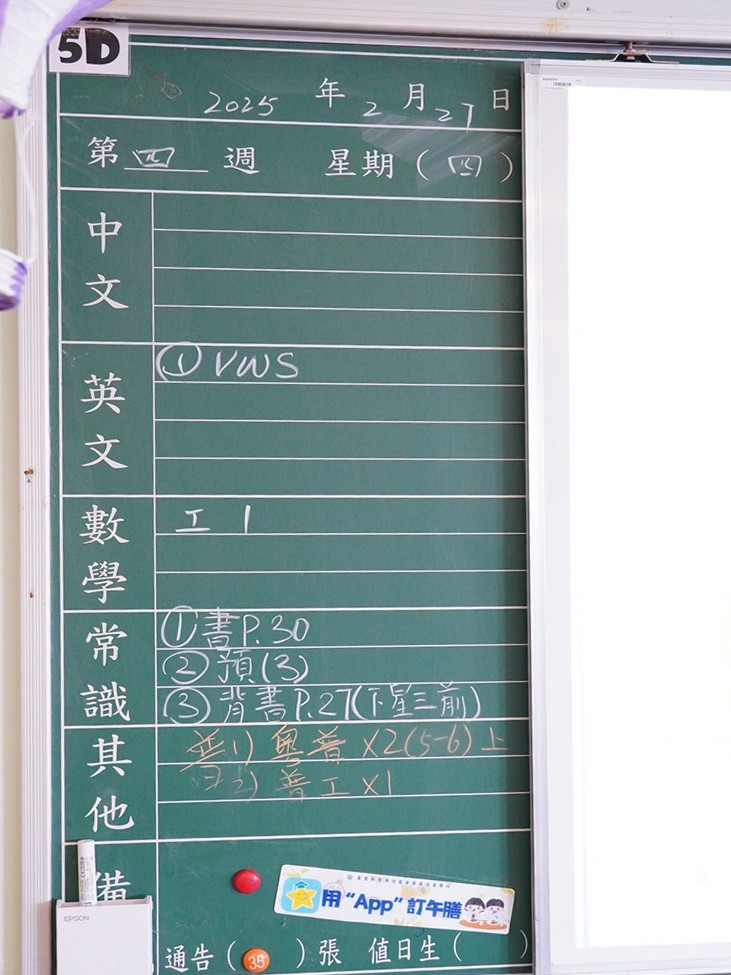 5D
2025 年 2 月 27 日
第 四 週 星期 ( 四 )
中文
英文
① VWS
數學
工 1
常識
① 書 P.30
② 預(3)
③ 背書 P.27(下星三前)
其他
普 1) 粵普 X2(5-6)上
2) 普工 X1
備
EPSON
用 "App" 訂午膳
通告 ( 35 ) 張 值日生 ( )